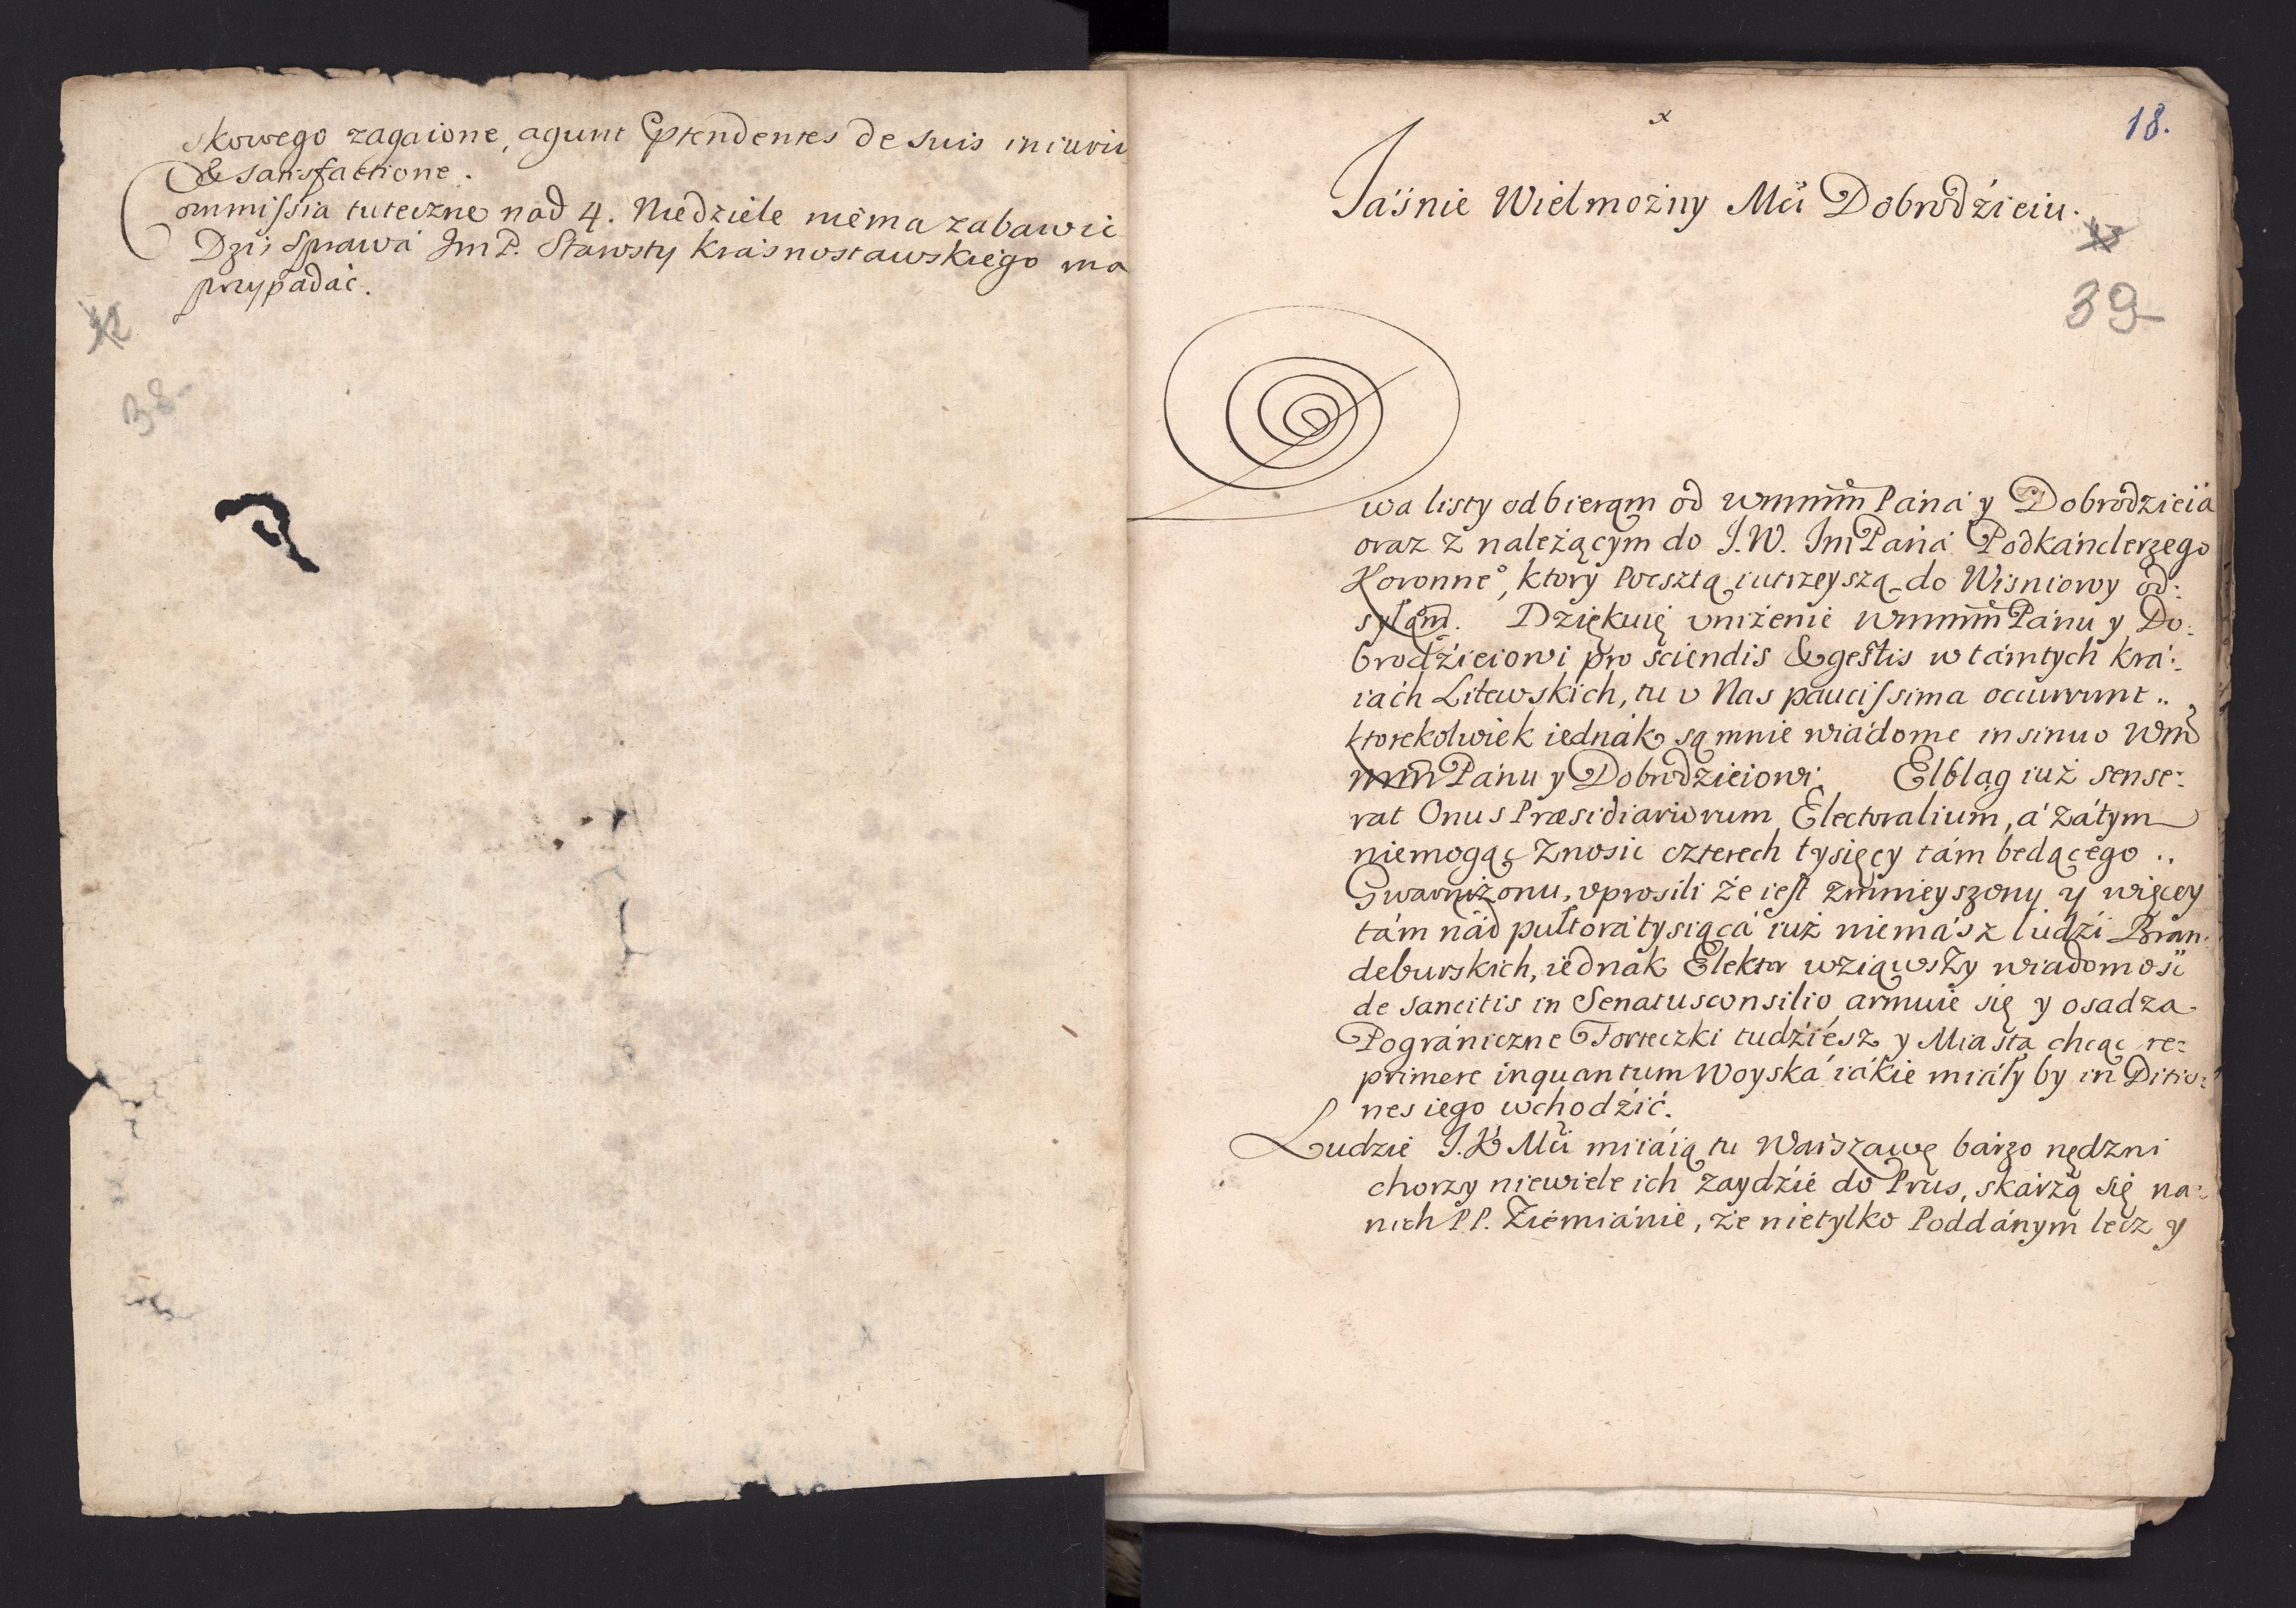 skowego zagaione, agunt Ptendentes de suis iniuriis
& satisfactione.
Commissia tuteczne nad 4. Niedziele niema zabawić
Dziś Sprawa Jm P. Starosty Krasnostawskiego ma
przypadać.
12
38-
x
18.
Jaśnie Wielmożny Mći Dobrodźieiu.
39-
Dwa listy odbieram od Wmmm Páná y Dobrodzieiá
oraz z należącym do J.W. Jm Páná Podkánclerzego
Koronneº, ktory Pocsztą iutrzeyszą do Wisniowy od:
syłąm. Dziękuię vniżenie Wmmm Pánu y Do:
brodźieiowi pro sciendis & gestis w támtych krá:
iách Litewskich, tu v Nas paucissima occurrunt..
ktorekolwiek iednák są mnie wiádome insinuo Wm
mm Pánu y Dobrodzieiowi. Elbląg iuż sense:
rat Onus Præsidiariorum Electoralium, á zátym
niemogąc znosić czterech tysięcy tám będącego ..
Gwarniżonu, vprosili że iest zmnieyszony y więcey
tám nád pułtorá tysiącá iuż niemász ludźi Brán:
deburskich, iednak Elektor wziąwszy wiadomość
de sancitis in Senatusconsilio, armuie się y osadza
Pográniczne Forteczki tudźiesz y Miasta chcąc re:
primere inquantum Woyská iákie miáły by in Ditio:
nes iego wchodźić.
Ludzie J.K Mći miiáią tu Warszawę bárzo nędzni
chorzy niewiele ich zaydźie do Prus, skárżą się na:
nich PP. Ziemiánie, że nietylko Poddánym lecz y